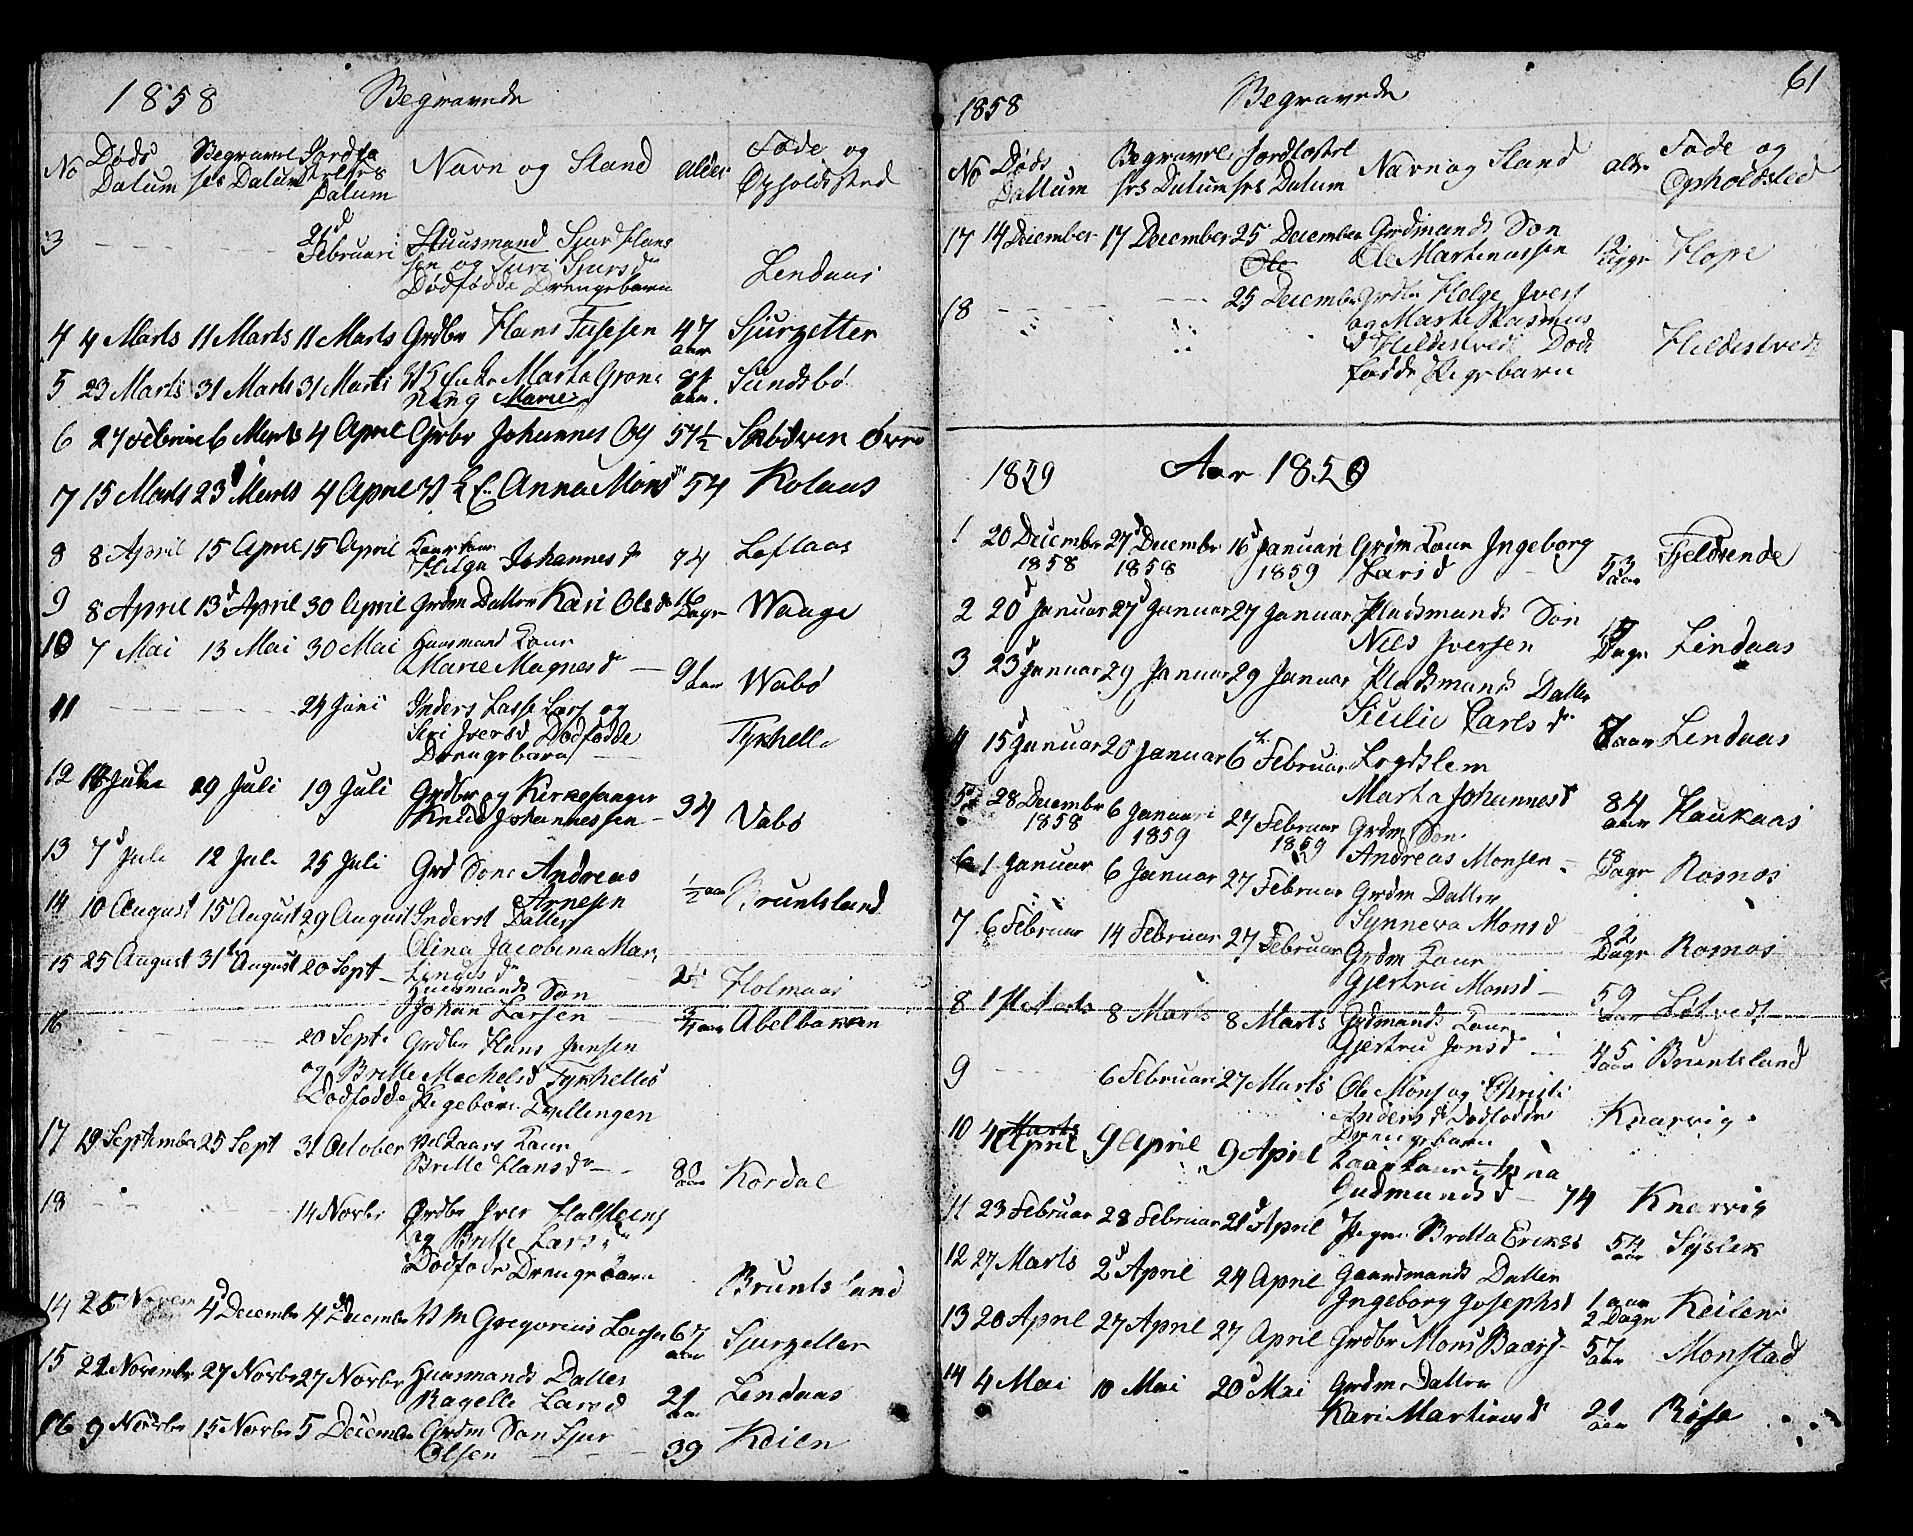 1858 Begravede
No Døds Datum Begravel ses Datum Jordfæ stelses Datum Navn og Stand Alder Føde og Opholdssted
3 21d Februari Huusmand Sjur Hans
sen og Turi Sjursdr
Dødfødde Drengebarn Lendaas
4 4 Marts 11 Marts 11 Marts Grdbr Hans Tussen 47 aar Sjurzetter
5 23 Marts 31 Marts 31 Marts Enke Marta Grone
ning Marie 81 aar. Sundsbø
6 27 Februar 6 Marts 4 April Grbr Johannes O 57½ Øvre
7 15 Marts 23d Marts 4 April Anna Monsdr 54 Kolaas
8 8 April 15 April 15 April Kaarkone
Helga Johannesdr 74 Loflaas
9 8 April 13d April 30 April Grdm Datter Kari Olsdr 16 Dagr Waage
10 7 Mai 13 Mai 30 Mai Huusmand Kone
Marie Magnesdr — 91 aar Wabø
11 24 Juni Inders Lasse Lars og
Siri Iversd Dødfødde
Drengebarn Tyshelle
12 Juli 19 Juli 19 Juli Grdbr og Kirkesanger
Knud Johannessen — 34 Vabø
13 7d Juli 12 Juli 25 Juli Grd Søne Andreas
Arnesen ½ aar Bruntsland
14 10 August 15 August 29 August Inderst Datter
Olina Jacobina Mar,
tinusdr 2½ Holmaas
15 25 August 31t August 20 Sept — Huusmands Søn
Johan Larsen — ¾ aar Abelbakken
16 20 Sept. Grdbr Hans Jensen
og Britte Machelsd Tyshelles
Dødfødde Pigebørn Tvillingen
17 19 September 25 Sept 31 October Kaars Kone
Britte Hansdr — 80 aar Kordal
18 14 Novbr Grdbr Iver Halsteens
og Britte Larsdr
Dødfødde Drengebarn Bruntsland
14 26 Novem 4d December 4d December Gregorius Larsen 67 aar Sjurzetter
15 21 November 27 Novbr 27 Novbr Huusmands Datter
Ragelle Larsd 21 aar Lendaas
16 9 Novbr 15 Novbr 5 December Grdm Søn Sjur
Olsen — 39 Keien
61
1858 Begravede
No Døds Dattum Begravel ses Datum Jordfæstel ses Datum Navn og Stand Aldr Føde og Opholdsted
17 14 December 17 December 25 December Grdmands Søn
Ole Martinussen 12 Hope
18 25 December Grdbr Helge Ivers
og Marte Rasmus
d Hildestvedt Død
fødde Pigebarn Hildestvedt
1859 Aar 1859
1 20 December 1858 27d December 1858 16d Januari 1859 Grdm Kone Ingeborg
Larsd 53 aar Fjeldsende
2 20d Januar 27d Januar 27 Januar Pladsmands Søn
Nils Iversen Dagr Lindaas
3 23d Januar 29 Januar 29 Januar Pladsmands Datter
Sicilie Carlsd. aar Lendaas
4 15d Januar 20 Januar 6t Februar Legdslem
Marta Johannesd 84 aar Haukaas
5 28 December 1858 6 Januari 1859 27 Februar 1859 Grdm Søn.
Andreas Monsen — 18 Dagr Rosnos
6 1 Januar 6 Januar 27 Februar Grdm Datter
Synneva Monsd 22 Dagr Rosnos
7 6 Februar 14 Februar 27 Februar Grdm Kone
Gjertru Monsd — 59 aar Løtvedt
8 1 Marts 8 Marts 8 Marts Grdmands Kone
Gjertru Jonsd — 45 aar Bruntsland
9 6 Februari 27 Marts Ole Mons og Christi
Andersd Dødfødde
Drengebarn Knarvig
10 4 April 9 April 9 April Kaarkone Anna
Gudmundsd — 74 Knarvig
11 23 Februar 28 Februar 21d April Pigen Britta Eriksd 54 aar Syslek
12 27 Marts 2d April 24 April Gaardmands Datter
Ingeborg Josephsd 1 aar 2 Dagr Keilen
13 20 April 27 April 27 April Grdbr Mons Baars — 57 aar Monstad
14 4 Mai 10 Mai 20d Mai Grdm Datter
Kari Martinusd 21 aar Risa